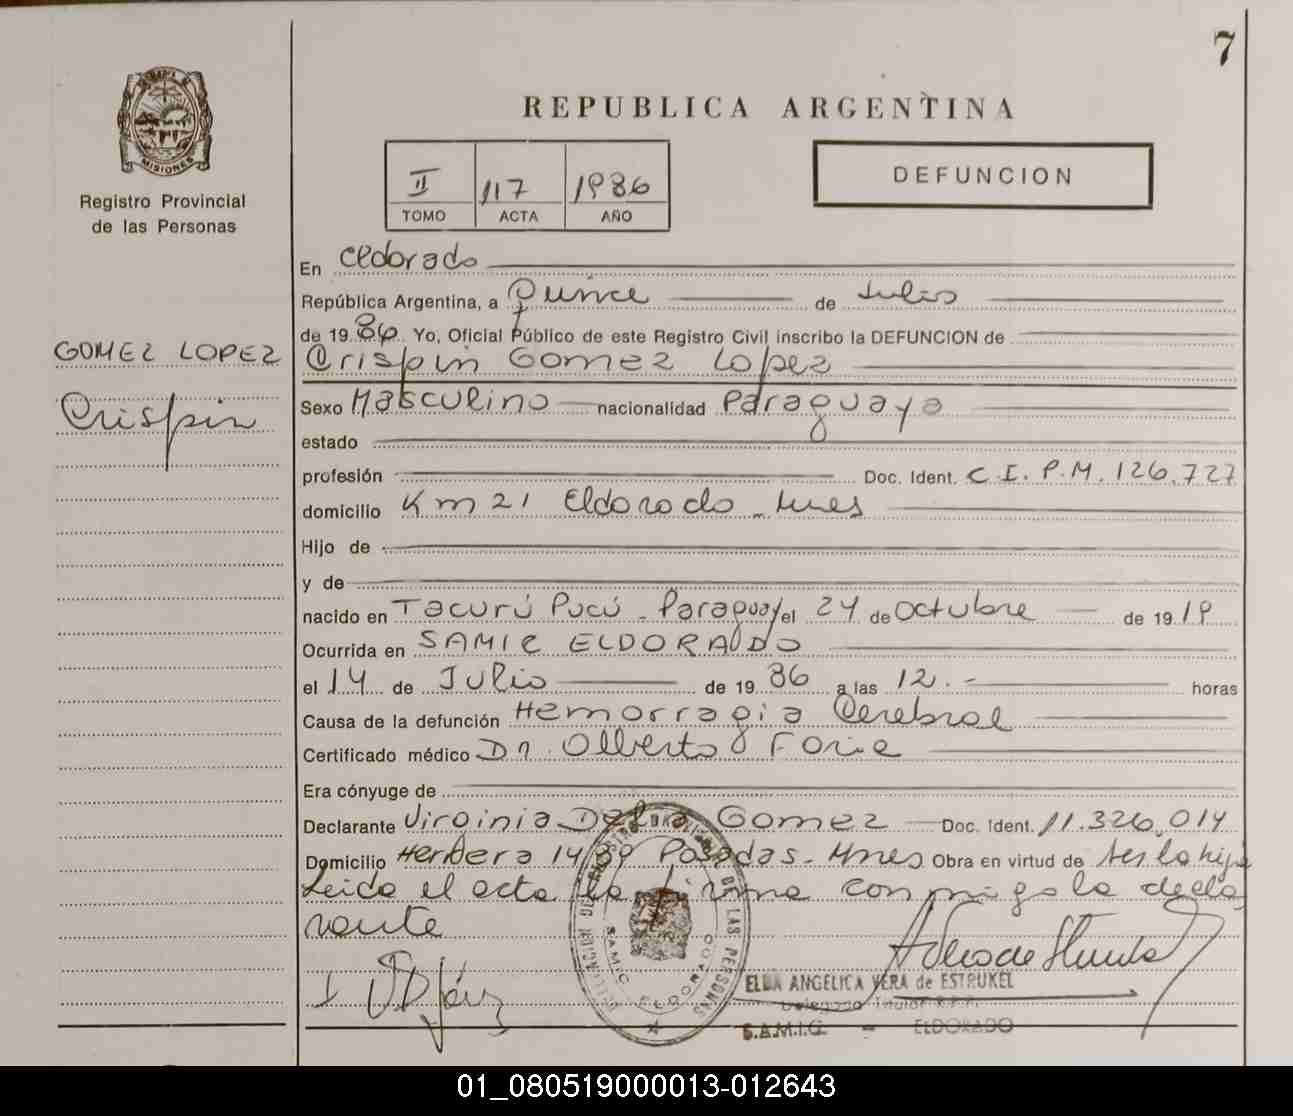 7
MISIONES
REPUBLICA ARGENTINA
Registro Provincial
de las Personas
II 117 1986
TOMO ACTA AÑO
DEFUNCION
En Eldorado
República Argentina, a Quince de Julio
de 1986 Yo, Oficial Público de este Registro Civil inscribo la DEFUNCION de
GOMEZ LOPEZ
Crispin
Crispin Gomez Lopez
Sexo Masculino nacionalidad Paraguaya
estado
profesión Doc. Ident. C.I.P.M. 126.727
domicilio Km 21 Eldorado - Mnes
Hijo de
y de
nacido en Tacurú Pucú - Paraguay el 24 de Octubre de 1919
Ocurrida en SAMIC ELDORADO
el 14 de Julio de 1986 a las 12.- horas
Causa de la defunción Hemorragia Cerebral
Certificado médico Dr. Alberto
Era cónyuge de
Declarante Virginia Delia Gomez Doc. Ident. 11.326.014
Domicilio Herrera Posadas - Mnes Obra en virtud de ser la hija
Leida el acta la firma conmigo la decla
rante
DELEGACION DEL REGISTRO DE LAS PERSONAS
S.A.M.I.C. ELDORADO
ELBA ANGELICA VERA de ESTRUKEL
Delegada Titular R.P.P.
S.A.M.I.C. - ELDORADO
01_080519000013-012643